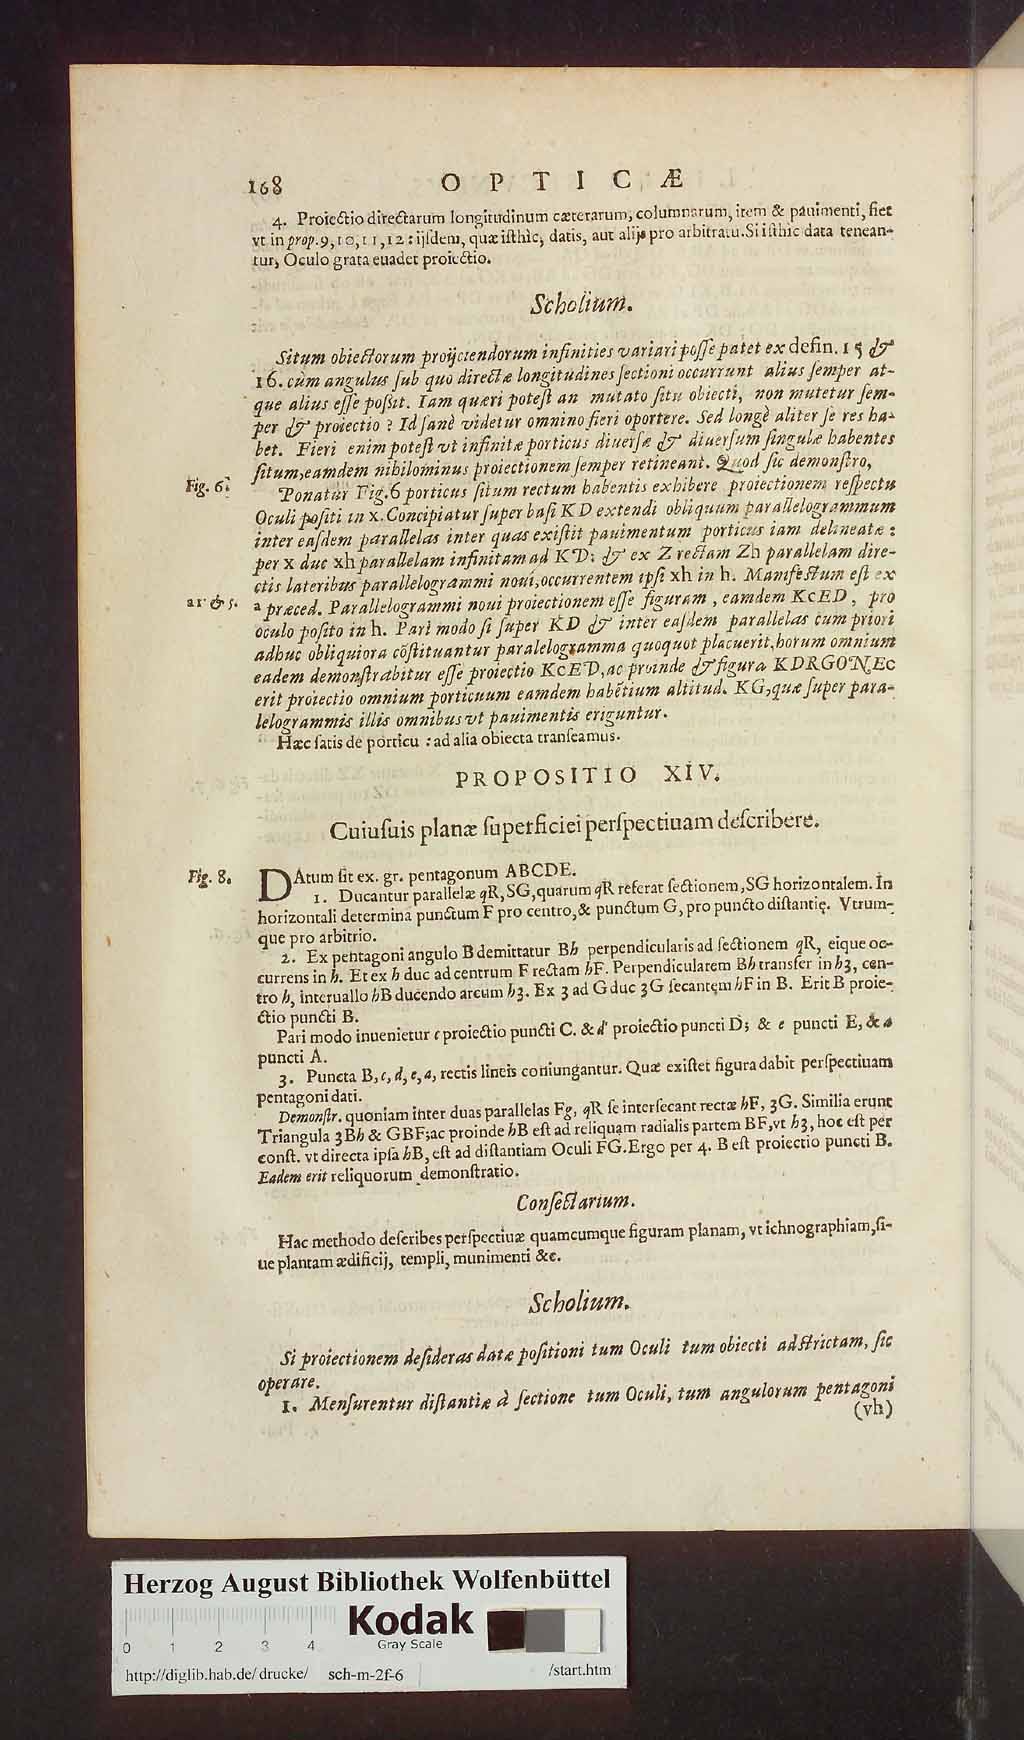 168 OPTICÆ
4. Proiectio directarum longitudinum cæterarum, columnarum, item & pauimenti, fiet
vt in prop. 9, 10, 11, 12: ijſdem, quæ iſthic, datis, aut alijs pro arbitratu. Si iſthic data tenean-
tur, Oculo grata euadet proiectio.
Scholium.
Situm obiectorum proijciendorum infinities variari poſſe patet ex defin. 15 &
16. cùm angulus ſub quo directæ longitudines ſectioni occurrunt alius ſemper at-
que alius eſſe poßit. Iam quæri poteſt an mutato ſitu obiecti, non mutetur ſem-
per & proiectio? Id ſanè videtur omnino fieri oportere. Sed longè aliter ſe res ha-
bet. Fieri enim poteſt vt infinitæ porticus diuerſæ & diuerſum ſingulæ habentes
ſitum, eamdem nihilominus proiectionem ſemper retineant. Quod ſic demonſtro,
Fig. 6. Ponatur Fig. 6 porticus ſitum rectum habentis exhibere proiectionem reſpectu
Oculi poſiti in x. Concipiatur ſuper baſi KD extendi obliquum parallelogrammum
inter eaſdem parallelas inter quas exiſtit pauimentum porticus iam delineatæ:
per x duc xh parallelam infinitam ad KD: & ex Z rectam Zh parallelam dire-
ctis lateribus parallelogrammi noui, occurrentem ipſi xh in h. Manifeſtum eſt ex
a 1. & 5. a præced. Parallelogrammi noui proiectionem eſſe figuram, eamdem KcED, pro
oculo poſito in h. Pari modo ſi ſuper KD & inter eaſdem parallelas cum priori
adhuc obliquiora cõſtituantur paralelogramma quoquot placuerit, horum omnium
eadem demonſtrabitur eſſe proiectio KcED, ac proinde & figura KDRGONEc
erit proiectio omnium porticuum eamdem habẽtium altitud. KG, quæ ſuper para-
lelogrammis illis omnibus vt pauimentis eriguntur.
Hæc ſatis de porticu: ad alia obiecta tranſeamus.
PROPOSITIO XIV.
Cuiuſuis planæ ſuperficiei perſpectiuam deſcribere.
Fig. 8. DAtum ſit ex. gr. pentagonum ABCDE.
1. Ducantur parallelæ qR, SG, quarum qR referat ſectionem, SG horizontalem. In
horizontali determina punctum F pro centro, & punctum G, pro puncto diſtantię. Vtrum-
que pro arbitrio.
2. Ex pentagoni angulo B demittatur Bh perpendicularis ad ſectionem qR, eique oc-
currens in h. Et ex h duc ad centrum F rectam hF. Perpendicularem Bh transfer in h3, cen-
tro h, interuallo hB ducendo arcum h3. Ex 3 ad G duc 3G ſecantem hF in B. Erit B proie-
ctio puncti B.
Pari modo inuenietur c proiectio puncti C. & d proiectio puncti D; & e puncti E, & a
puncti A.
3. Puncta B, c, d, e, a, rectis lineis coniungantur. Quæ exiſtet figura dabit perſpectiuam
pentagoni dati.
Demonſtr. quoniam inter duas parallelas Fg, qR ſe interſecant rectæ hF, 3G. Similia erunt
Triangula 3Bh & GBF; ac proinde hB eſt ad reliquam radialis partem BF, vt h3, hoc eſt per
conſt. vt directa ipſa hB, eſt ad diſtantiam Oculi FG. Ergo per 4. B eſt proiectio puncti B.
Eadem erit reliquorum demonſtratio.
Conſectarium.
Hac methodo deſcribes perſpectiuæ quamcumque figuram planam, vt ichnographiam, ſi-
ue plantam ædificij, templi, munimenti &c.
Scholium.
Si proiectionem deſideras datæ poſitioni tum Oculi tum obiecti adſtrictam, ſic
operare.
1. Menſurentur diſtantiæ à ſectione tum Oculi, tum angulorum pentagoni
(vh)
Herzog August Bibliothek Wolfenbüttel
Kodak
0 1 2 3 4 Gray Scale
http://diglib.hab.de/drucke/ sch-m-2f-6 /start.htm